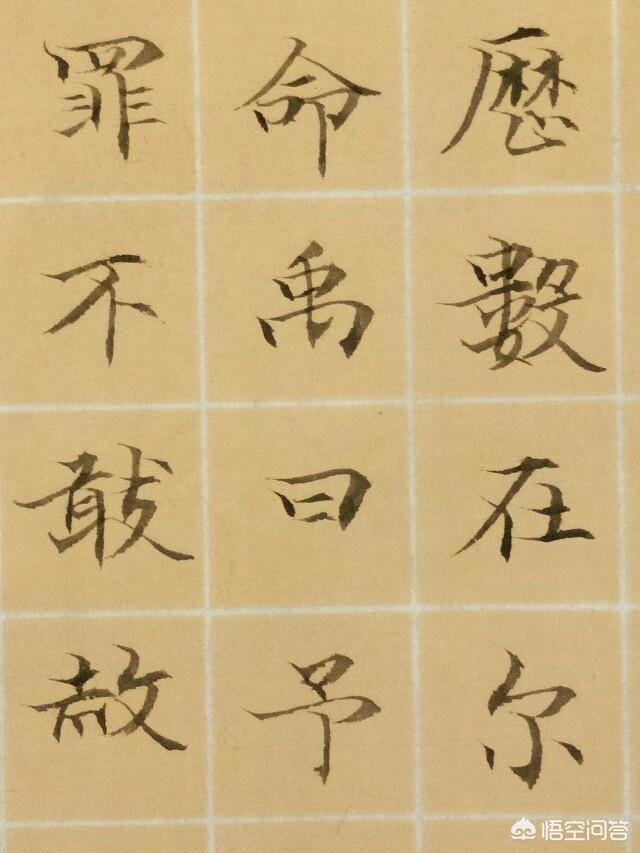 歷數在尔
命禹曰予
罪不敢赦
悟空问答